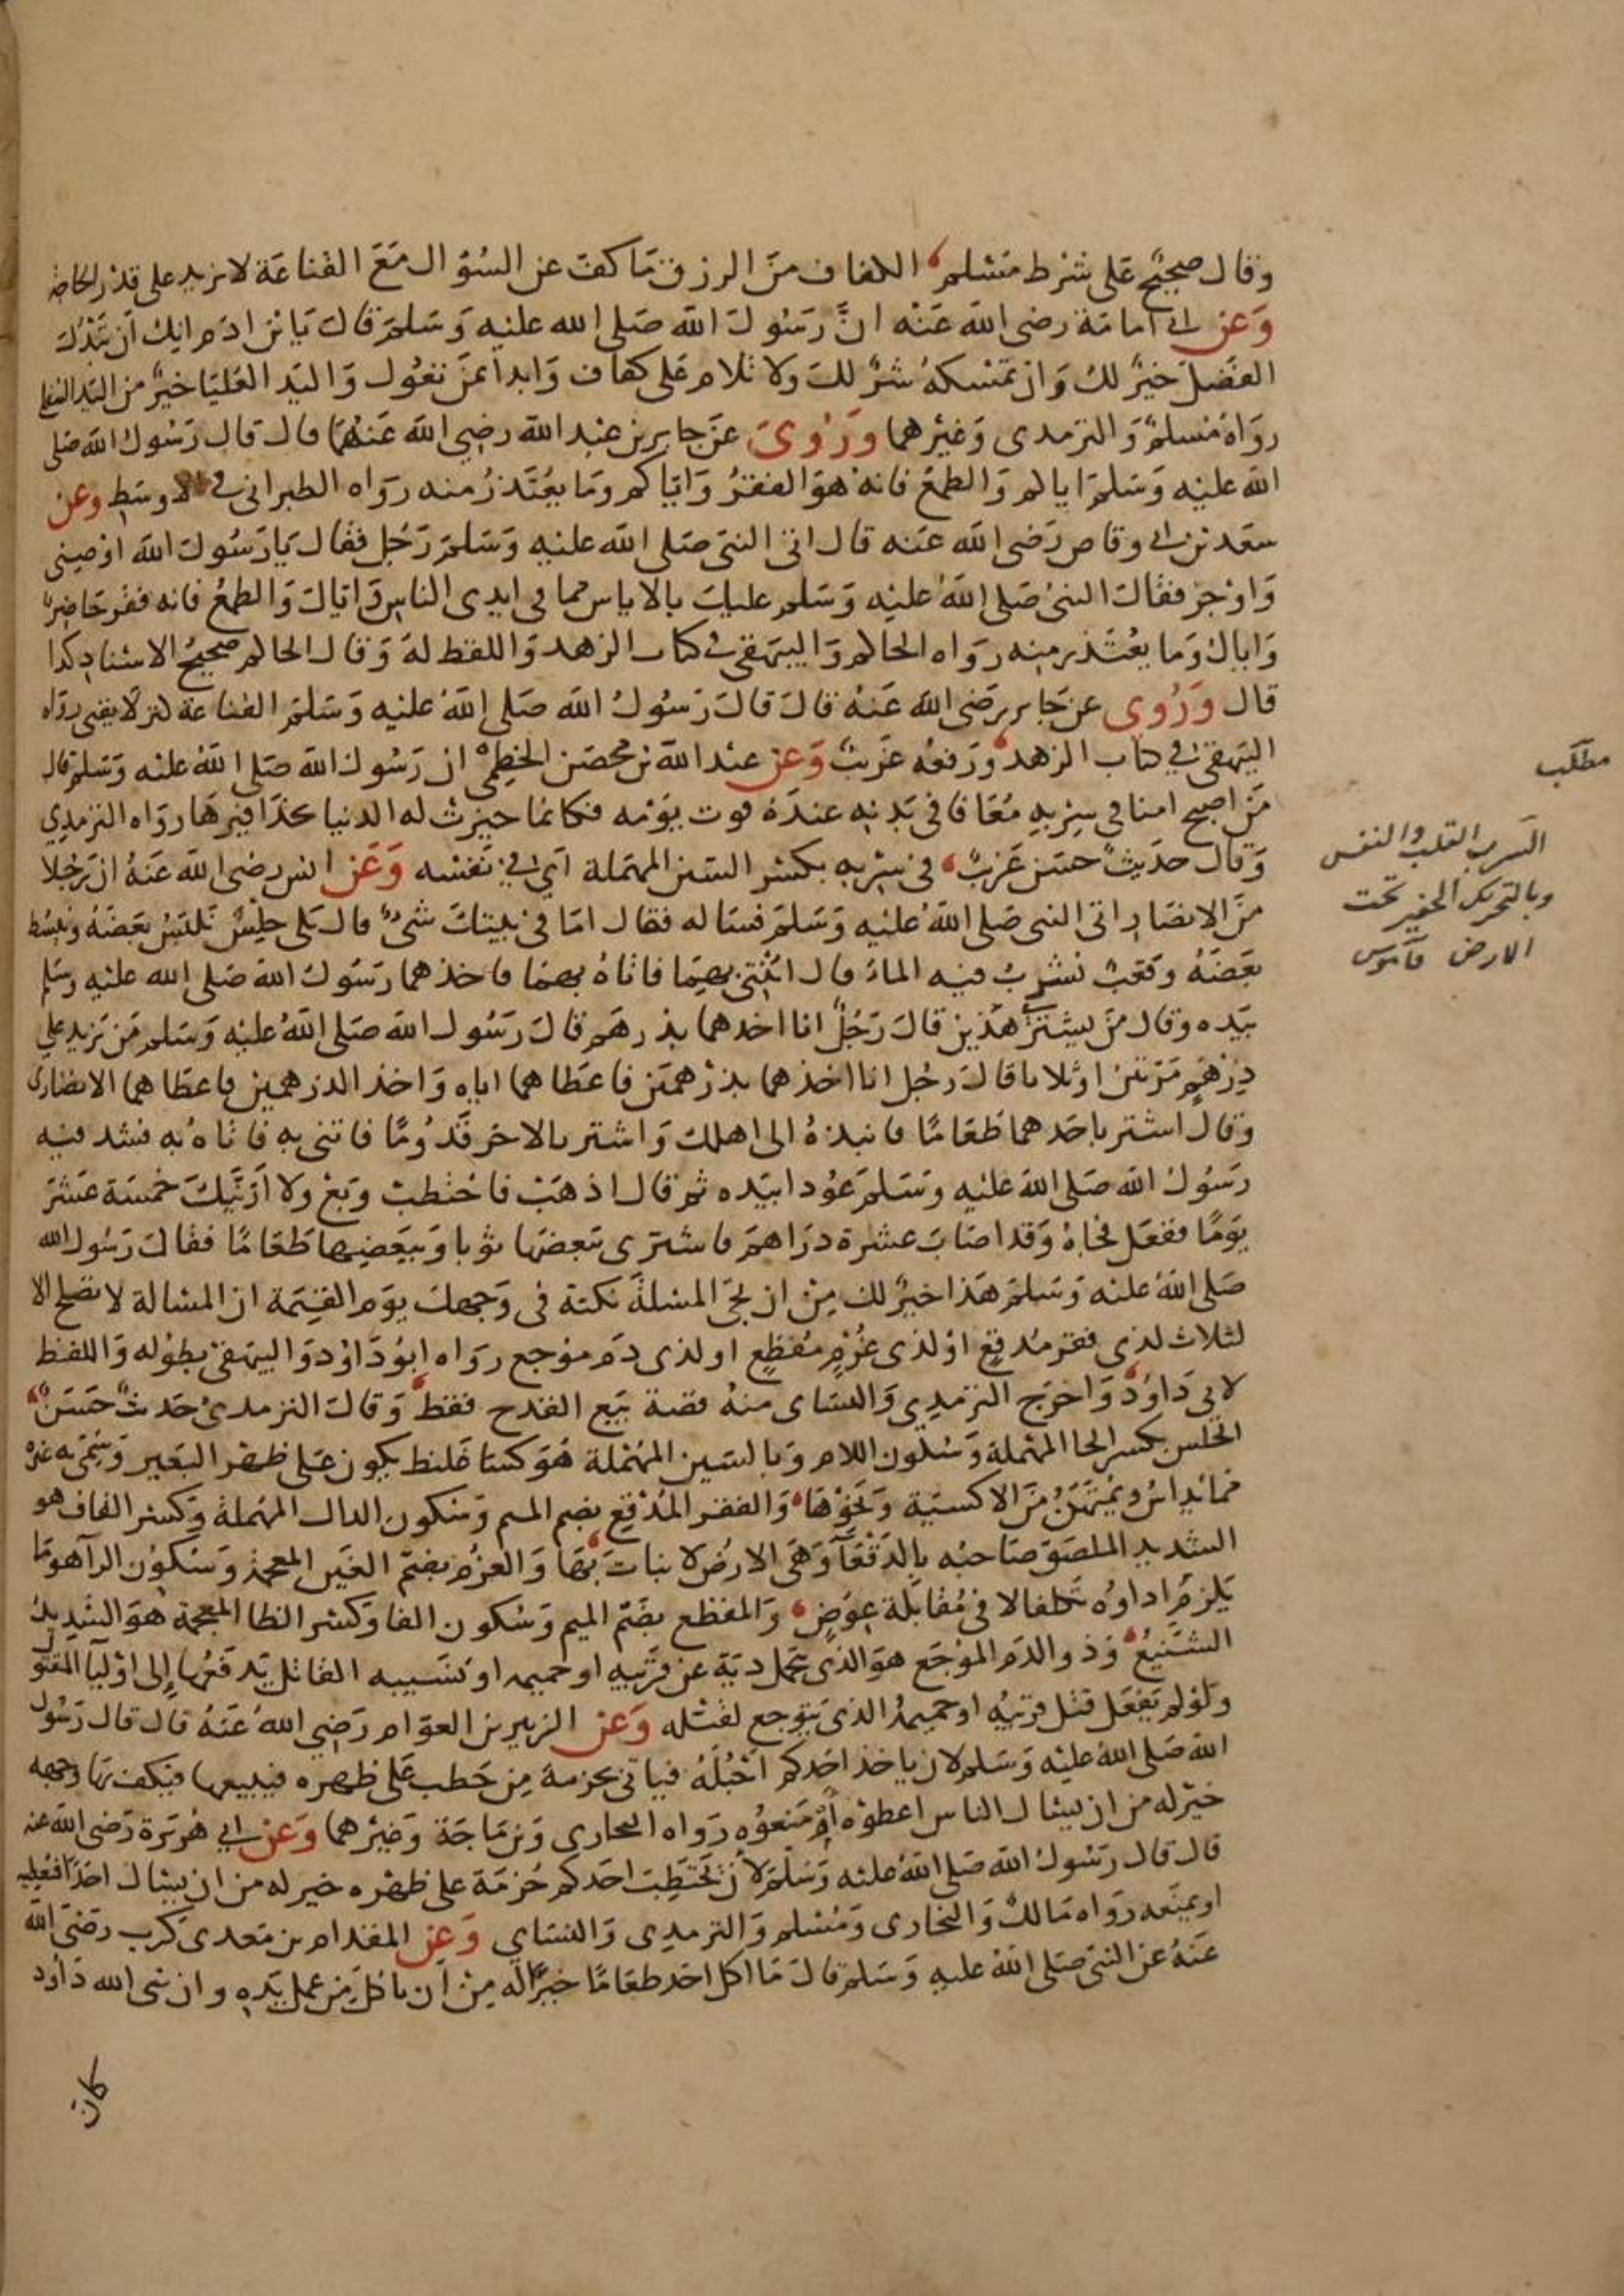 وقال صحيح على شرط مسلم الكفاف من الرزق ما كف عن السؤال مع القناعة لا يزيد على قدر الحاجة
وعن ابي امامة رضي الله عنه ان رسول الله صلى الله عليه وسلم قال يا بن ادم انك ان تبذل
الفضل خير لك وان تمسكه شر لك ولا تلام على كفاف وابدا بمن تعول واليد العليا خير من اليد السفلى
رواه مسلم والترمدي وغيرهما وروي عن جابر بن عبد الله رضي الله عنهما قال قال رسول الله صلى
الله عليه وسلم اياكم والطمع فانه هو الفقر واياكم وما يعتذر منه رواه الطبراني في الاوسط وعن
سعد بن ابي وقاص رضي الله عنه قال اتى النبي صلى الله عليه وسلم رجل فقال يا رسول الله اوصيني
واوجز فقال النبي صلى الله عليه وسلم عليك بالاياس مما في ايدي الناس واياك والطمع فانه فقر حاضر
واياك وما يعتذر منه رواه الحاكم والبيهقي في كتاب الزهد واللفظ له وقال الحاكم صحيح الاسناد كذا
قال وروي عن جابر رضي الله عنه قال قال رسول الله صلى الله عليه وسلم القناعة كنز لا يفنى رواه
البيهقي في كتاب الزهد ورفعه غريب وعن عبد الله بن محصن الخطمي ان رسول الله صلى الله عليه وسلم قال
من اصبح امنا في سربه معافا في بدنه عنده قوت يومه فكانما حيزت له الدنيا بحذافيرها رواه الترمدي
وقال حديث حسن غريب في سربه بكسر السين المهملة اي في نفسه وعن انس رضي الله عنه ان رجلا
من الانصار اتى النبي صلى الله عليه وسلم فساله فقال اما في بيتك شيء قال بلى حلس نلبس بعضه ونبسط
بعضه وقعب نشرب فيه الماء قال ائتني بهما فاتاه بهما فاخذهما رسول الله صلى الله عليه وسلم
بيده وقال من يشتري هذين قال رجل انا اخدهما بدرهم قال رسول الله صلى الله عليه وسلم من يزيد على
درهم مرتين او ثلاثا قال رجل انا اخذهما بدرهمين فاعطاهما اياه واخذ الدرهمين فاعطاهما الانصاري
وقال اشتر باحدهما طعاما فانبذه الى اهلك واشتر بالاخر قدوما فاتني به فاتاه به فشد فيه
رسول الله صلى الله عليه وسلم عودا بيده ثم قال اذهب فاحتطب وبع ولا ارينك خمسة عشر
يوما ففعل فجاه وقد اصاب عشرة دراهم فاشترى ببعضها ثوبا وببعضها طعاما فقال رسول الله
صلى الله عليه وسلم هذا خير لك من ان تجئ المسئلة نكتة في وجهك يوم القيمة ان المسالة لا تصلح الا
لثلاث لذي فقر مدقع او لذي غرم مفظع او لذي دم موجع رواه ابو داود والبيهقي بطوله واللفظ
لابي داود واخرج الترمدي والنساي منه قصة بيع القدح فقط وقال الترمدي حديث حسن
الحلس بكسر الحا المهملة وسكون اللام وبالسين المهملة هو كسا غليظ يكون على ظهر البعير وسمي به غيره
مما يداس ويمتهن من الاكسية ونحوها والفقر المدقع بضم الميم وسكون الدال المهملة وكسر القاف هو
الشديد الملصق صاحبه بالدقعاء وهي الارض لا نبات بها والغرم بضم الغين المعجمة وسكون الرا هو ما
يلزم اداوه تكلفا لا في مقابلة عوض والمفظع بضم الميم وسكون الفا وكسر الظا المعجمة هو الشديد
الشنيع وذو الدم الموجع هو الذي يتحمل دية عن قريبه او حميمه او نسيبه القاتل يدفعها إلى اوليا المقتول
ولو لم يفعل قتل قريبه او حميمه الذي يتوجع لقتله وعن الزبير بن العوام رضي الله عنه قال قال رسول
الله صلى الله عليه وسلم لان ياخذ احدكم احبله فياتي بحزمة من حطب على ظهره فيبيعها فيكف بها وجهه
خير له من ان يسال الناس اعطوه أو منعوه رواه البخاري وبن ماجة وغيرهما وعن ابي هريرة رضي الله عنه
قال قال رسول الله صلى الله عليه وسلم لأن يحتطب احدكم حزمة على ظهره خير له من ان يسال احدا فيعطيه
او يمنعه رواه مالك والبخاري ومسلم والترمدي والنساي وعن المقدام بن معدي كرب رضي الله
عنه عن النبي صلى الله عليه وسلم قال ما اكل احد طعاما خيرا له من ان ياكل من عمل يده وان نبي الله داود
كان
مطلب
السرب القلب والنفس
وبالتحريك الحفير تحت
الارض قاموس